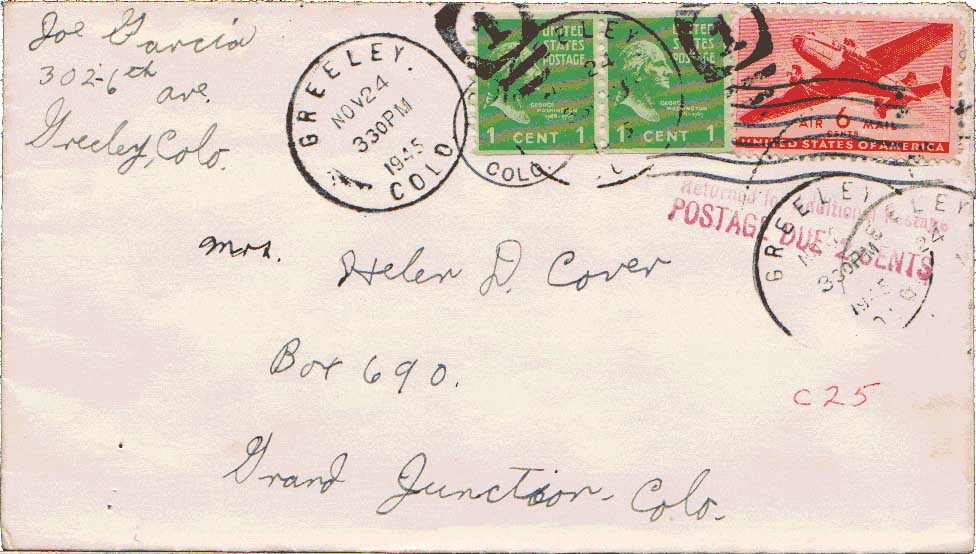 Joe Garcia
302-6th
ave.
Greeley, Colo.
GREELEY.
NOV 24
330PM
1945
COLO
UNITED
STATES
POSTAGE
GEORGE
WASHINGTON
1 CENT 1
UNITED
STATES
POSTAGE
GEORGE
WASHINGTON
1 CENT 1
ELEY
24
COLO.
6
CENTS
AIR MAIL
UNITED STATES OF AMERICA
Returned for Additional Postage
POSTAGE DUE 2 CENTS
GREELEY
330PM
ELEY
24
Mrs. Helen D. Cover
Box 690.
C25
Grand Junction - Colo.